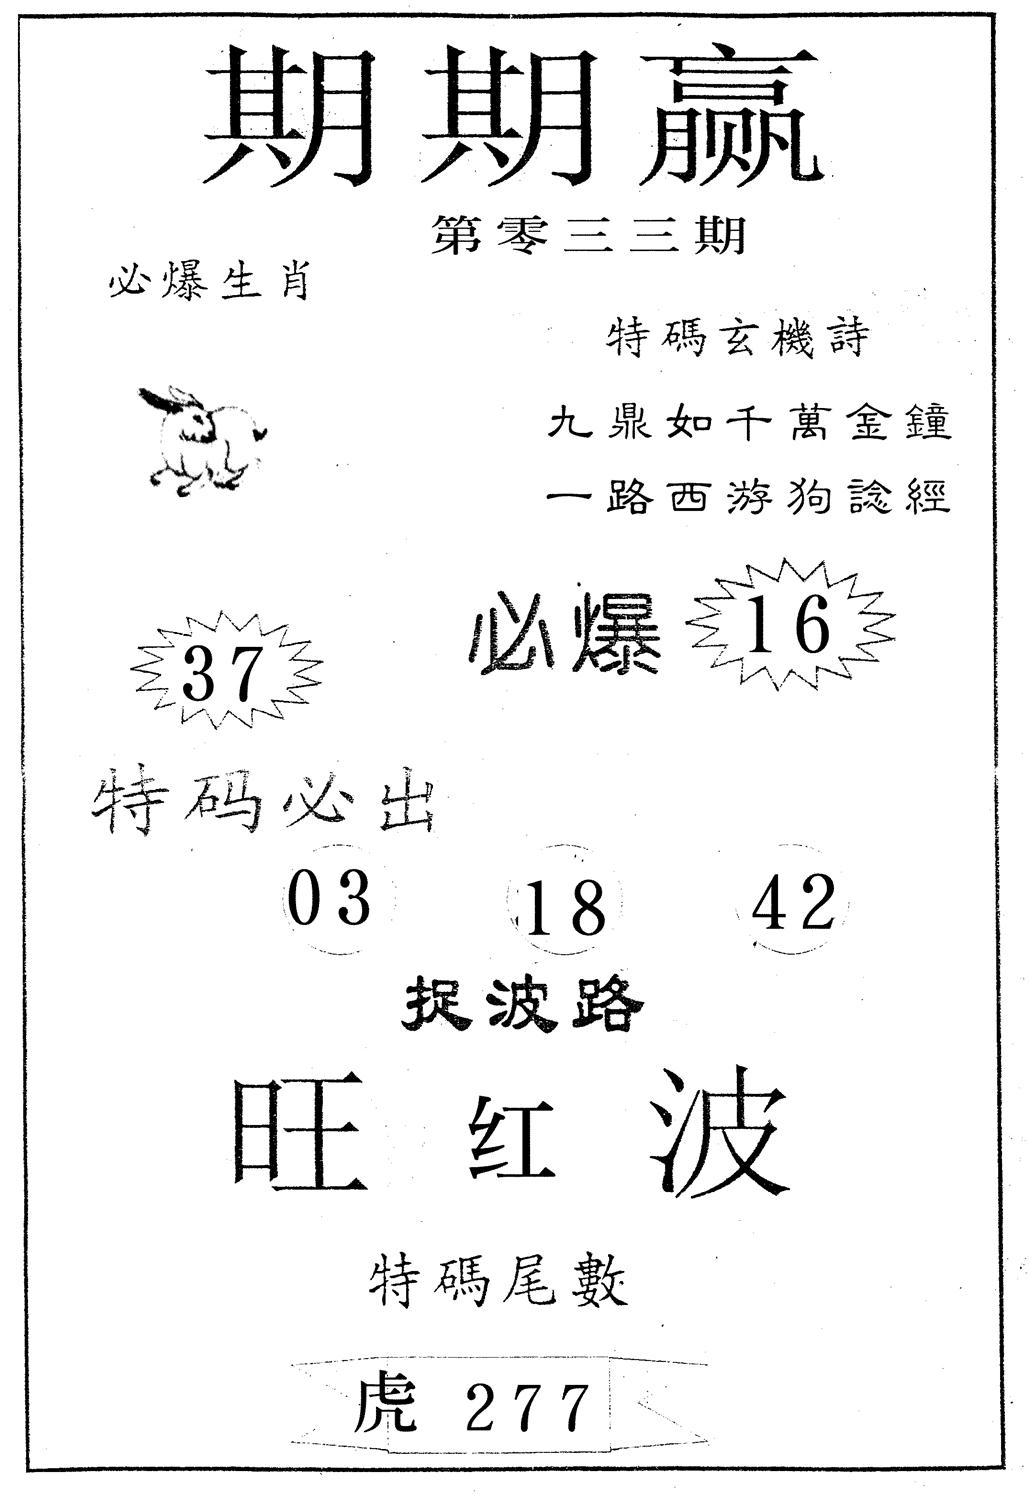 期期赢
第零三三期
必爆生肖
特碼玄機詩
九鼎如千萬金鐘
一路西游狗諗經
必爆 16
37
特码必出
03 18 42
捉波路
旺红波
特碼尾數
虎 277